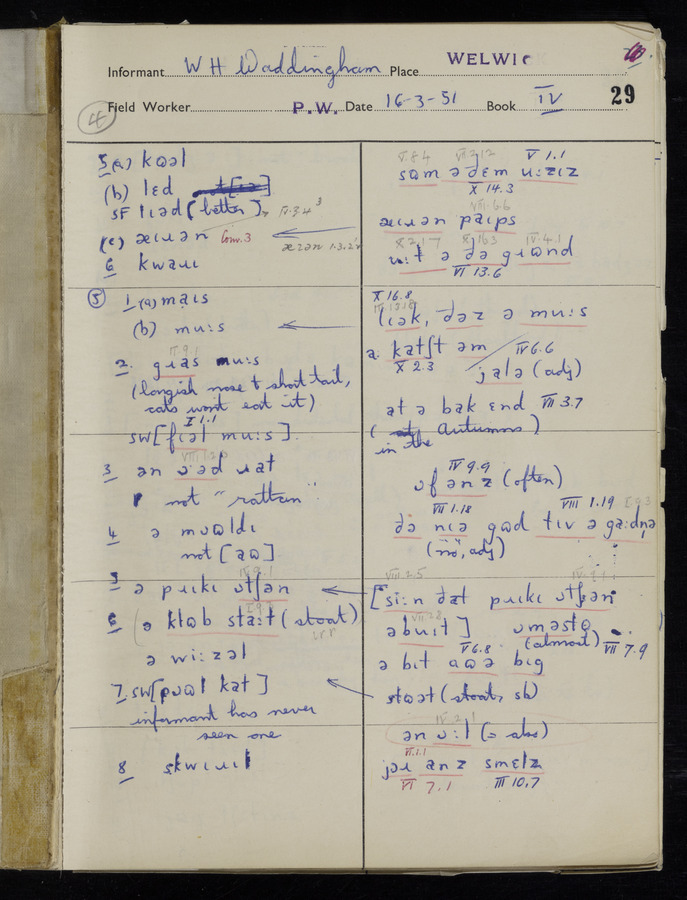 Informant W H Waddingham Place WELWIC
Field Worker P.W. Date 16-3-51 Book IV 29
4
5 (a) kɒəl
(b) lɛd
SF lɪəd (better) IV.3.4
(c) æɪɹən Conv.3 æɪən 1.3.2
6 kwaɹɪ
5 1 (a) maɪs
(b) mu:s
2. gɹas mu:s
(longish nose & short tail,
cats won't eat it)
I 1.1
SW [fɪəl mu:s]
3 ən ɔəd ɹat
not "rattan"
4 ə mɔʊldɪ
not [aʊ]
5 ə pɹɪkɪ ɒtʃən
6 (ə klɒb sta:t (stoat) irr
ə wi:zəl
7. SW [pɔʊl kat]
informant has never
seen one
8 skwɪɹɪl
V.8.4 VII 2.12 V 1.1
sʊm ə ðɛm u:zɪz
X 14.3
VIII.6.6
æɪɹən paɪps
X 2.17 IV.4.1
ɹu:t ə ðə gɹʊnd
VI 13.6
X 16.8
lɪək, ðəz ə mu:s
a: katʃt əm IV 6.6
X 2.3 jalə (adj)
at ə bak ɛnd VII 3.7
(in the Autumn)
IV 9.9
ɒfənz (often)
VII 1.18 VIII 1.19 I 9.3
ðə nɪə gʊd tɪv ə ga:dnə
(no, adj)
VIII.2.5
[si:n ðat pɹɪkɪ ɒtʃən
əbu:t] ɒməstə
V 6.8 (almost) VII 7.9
ə bɪt aʊə bɪg
stʊət (stoat, sb)
ən ɔ:l (= also)
VI.1.1
jəɹ anz smɛlz
VI 7.1 III 10.7